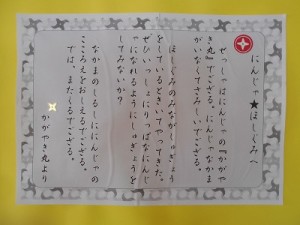 にんじゃ★ほしぐみへ
せっしゃはにんじゃの『かがや
き丸』でござる。にんじゃなかま
がいなくてさみしいでござる。
ほしぐみのみながしゅぎょう
をしているときいてやってきた。
ぜひいっしょにりっぱなにんじ
ゃになれるようにしゅぎょうを
してみないか？
なかまのしるしににんじゃの
こころえをおしえるでござる。
では、またくるでござる。
かがやき丸より